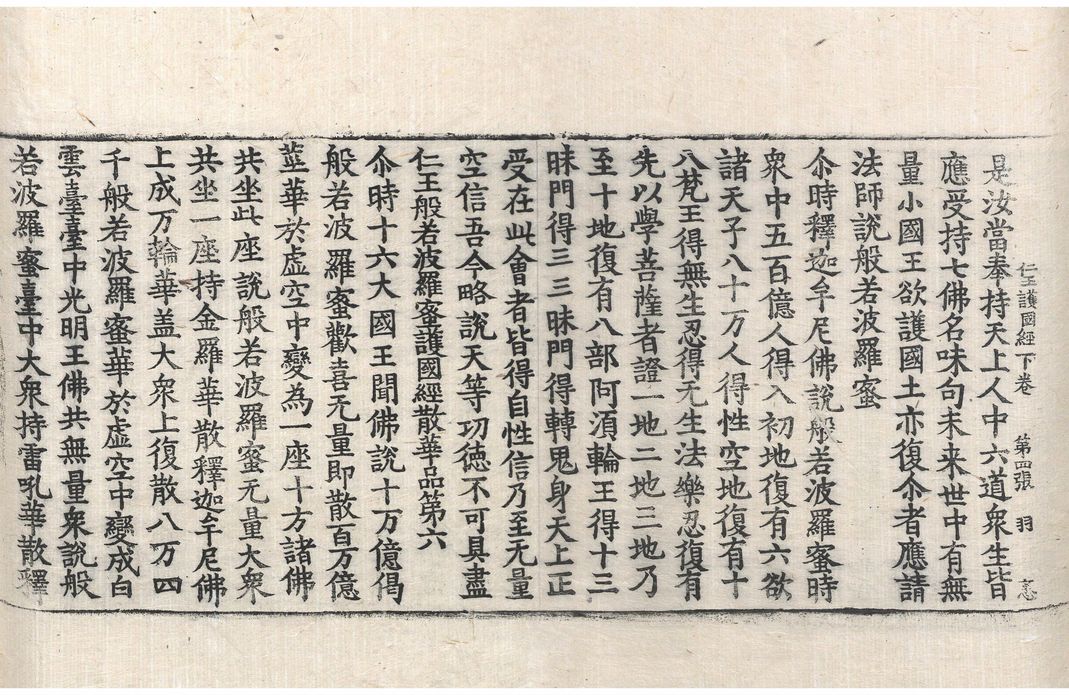 仁王護國經下卷 第四張 羽
是汝當奉持天上人中六道衆生皆
應受持七佛名味句未来世中有無
量小國王欲護國土亦復尒者應請
法師說般若波羅蜜
尒時釋迦牟尼佛說般若波羅蜜時
衆中五百億人得入初地復有六欲
諸天子八十万人得性空地復有十
八梵王得無生忍得无生法樂忍復有
先以學菩薩者證一地二地三地乃
至十地復有八部阿湏輪王得十三
昧門得三三昧門得轉鬼身天上正
受在此會者皆得自性信乃至无量
空信吾今略說天等功德不可具盡
仁王般若波羅蜜護國經散華品第六
尒時十六大國王聞佛說十万億偈
般若波羅蜜歡喜无量即散百万億
莖華於虛空中變為一座十方諸佛
共坐此座說般若波羅蜜无量大衆
共坐一座持金羅華散釋迦牟尼佛
上成万輪華盖大衆上復散八万四
千般若波羅蜜華於虛空中變成白
雲臺臺中光明王佛共無量衆說般
若波羅蜜臺中大衆持雷吼華散釋